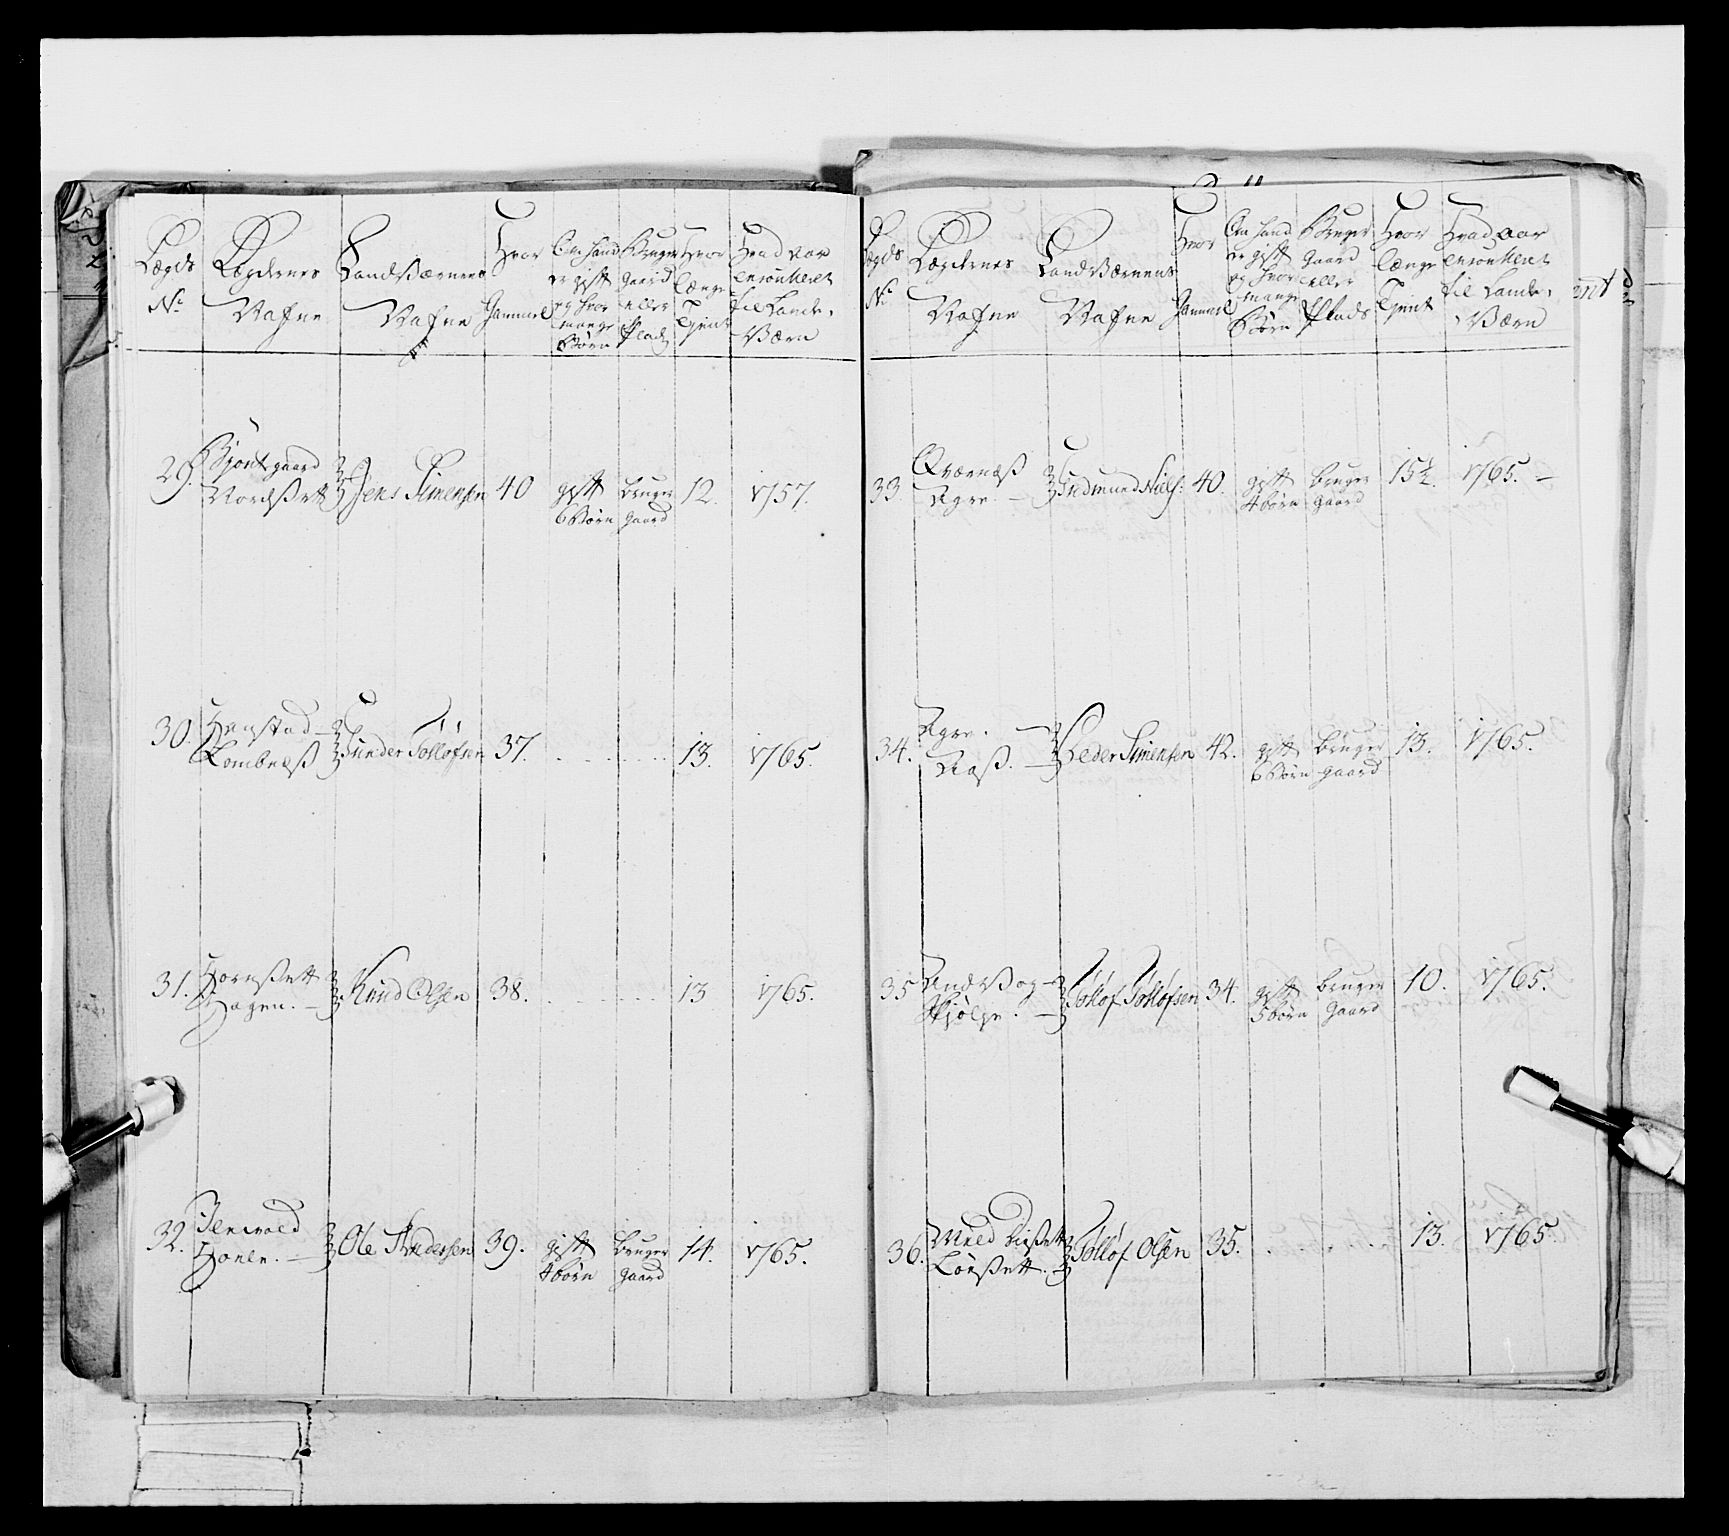 Lægds
No
Lægdernes
Nafne
Landværnens
Nafne
Hvor
Gammel
Om hand
er gift
og hvor
mange
Børn
Bruger
Gaard
eller
Plads
Hvor
længe
Tient
Hvad aar
enroulleret
til Lande,
Værn
29. Biontegaard
Nordsett
Jens Simensen 40 gift 6 Børn bruger Gaard 12. 1757.
30. Hanstad
Lombnæs
Gunder Tolløfsen 37. 13. 1765.
31. Hornsett
Hagen.
Knud Olsen 38. 13 1765.
32.
Ole Andersen 39. gift 4 børn bruger Gaard 14. 1765.
Lægds
No
Lægdernes
Nafne
Landværnens
Nafne
Hvor
Gammel
Om hand
er gift
og hvor
mange
Børn
Bruger
Gaard
eller
Plads
Hvor
længe
Tient
Hvad aar
enroulleret
til Lande,
Værn
33. Qværnæs
Agre.
Gudmund Niels: 40. gift 4 børn bruger gaard 15½. 1765.
34. Agre.
Aas.
Peder Simensen 42. gift 6 Børn bruger gaard 13. 1765.
35
Tolløf Tolløfsen 34. gift 5 børn bruger Gaard 10. 1765.
36.
Tolløf Olsen 35. 13. 1765.